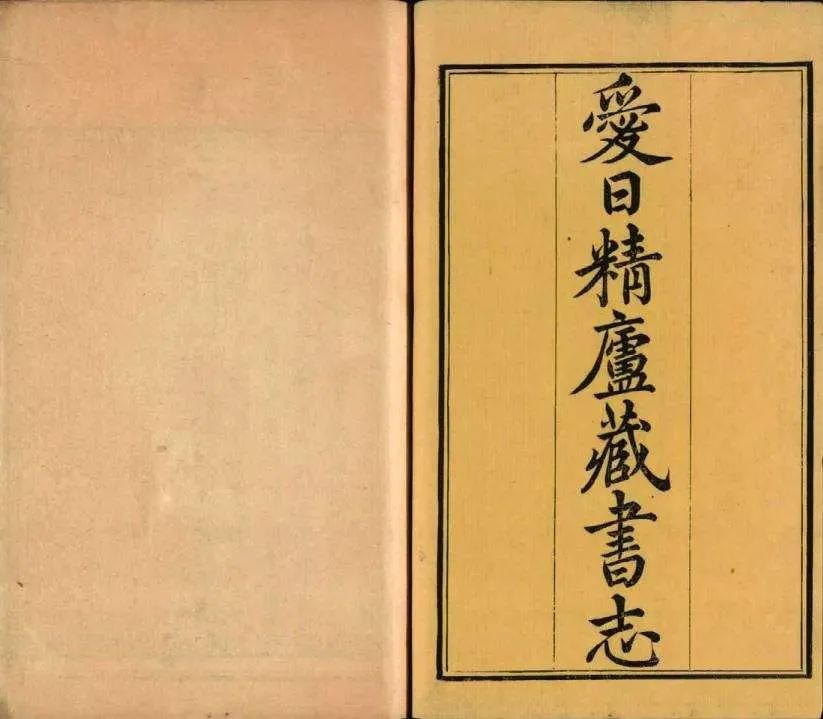 愛日精廬藏書志